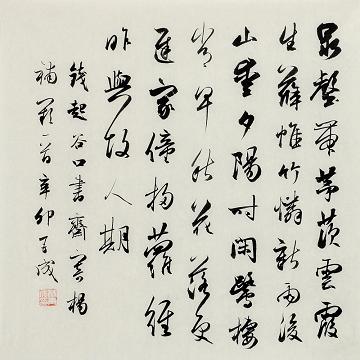 泉壑帶茅茨雲霞
生薜帷竹憐新雨後
山愛夕陽時閑鷺棲
常早秋花落更
遲家僮掃蘿徑
昨與故人期
錢起谷口書齋寄楊
補闕一首辛卯成